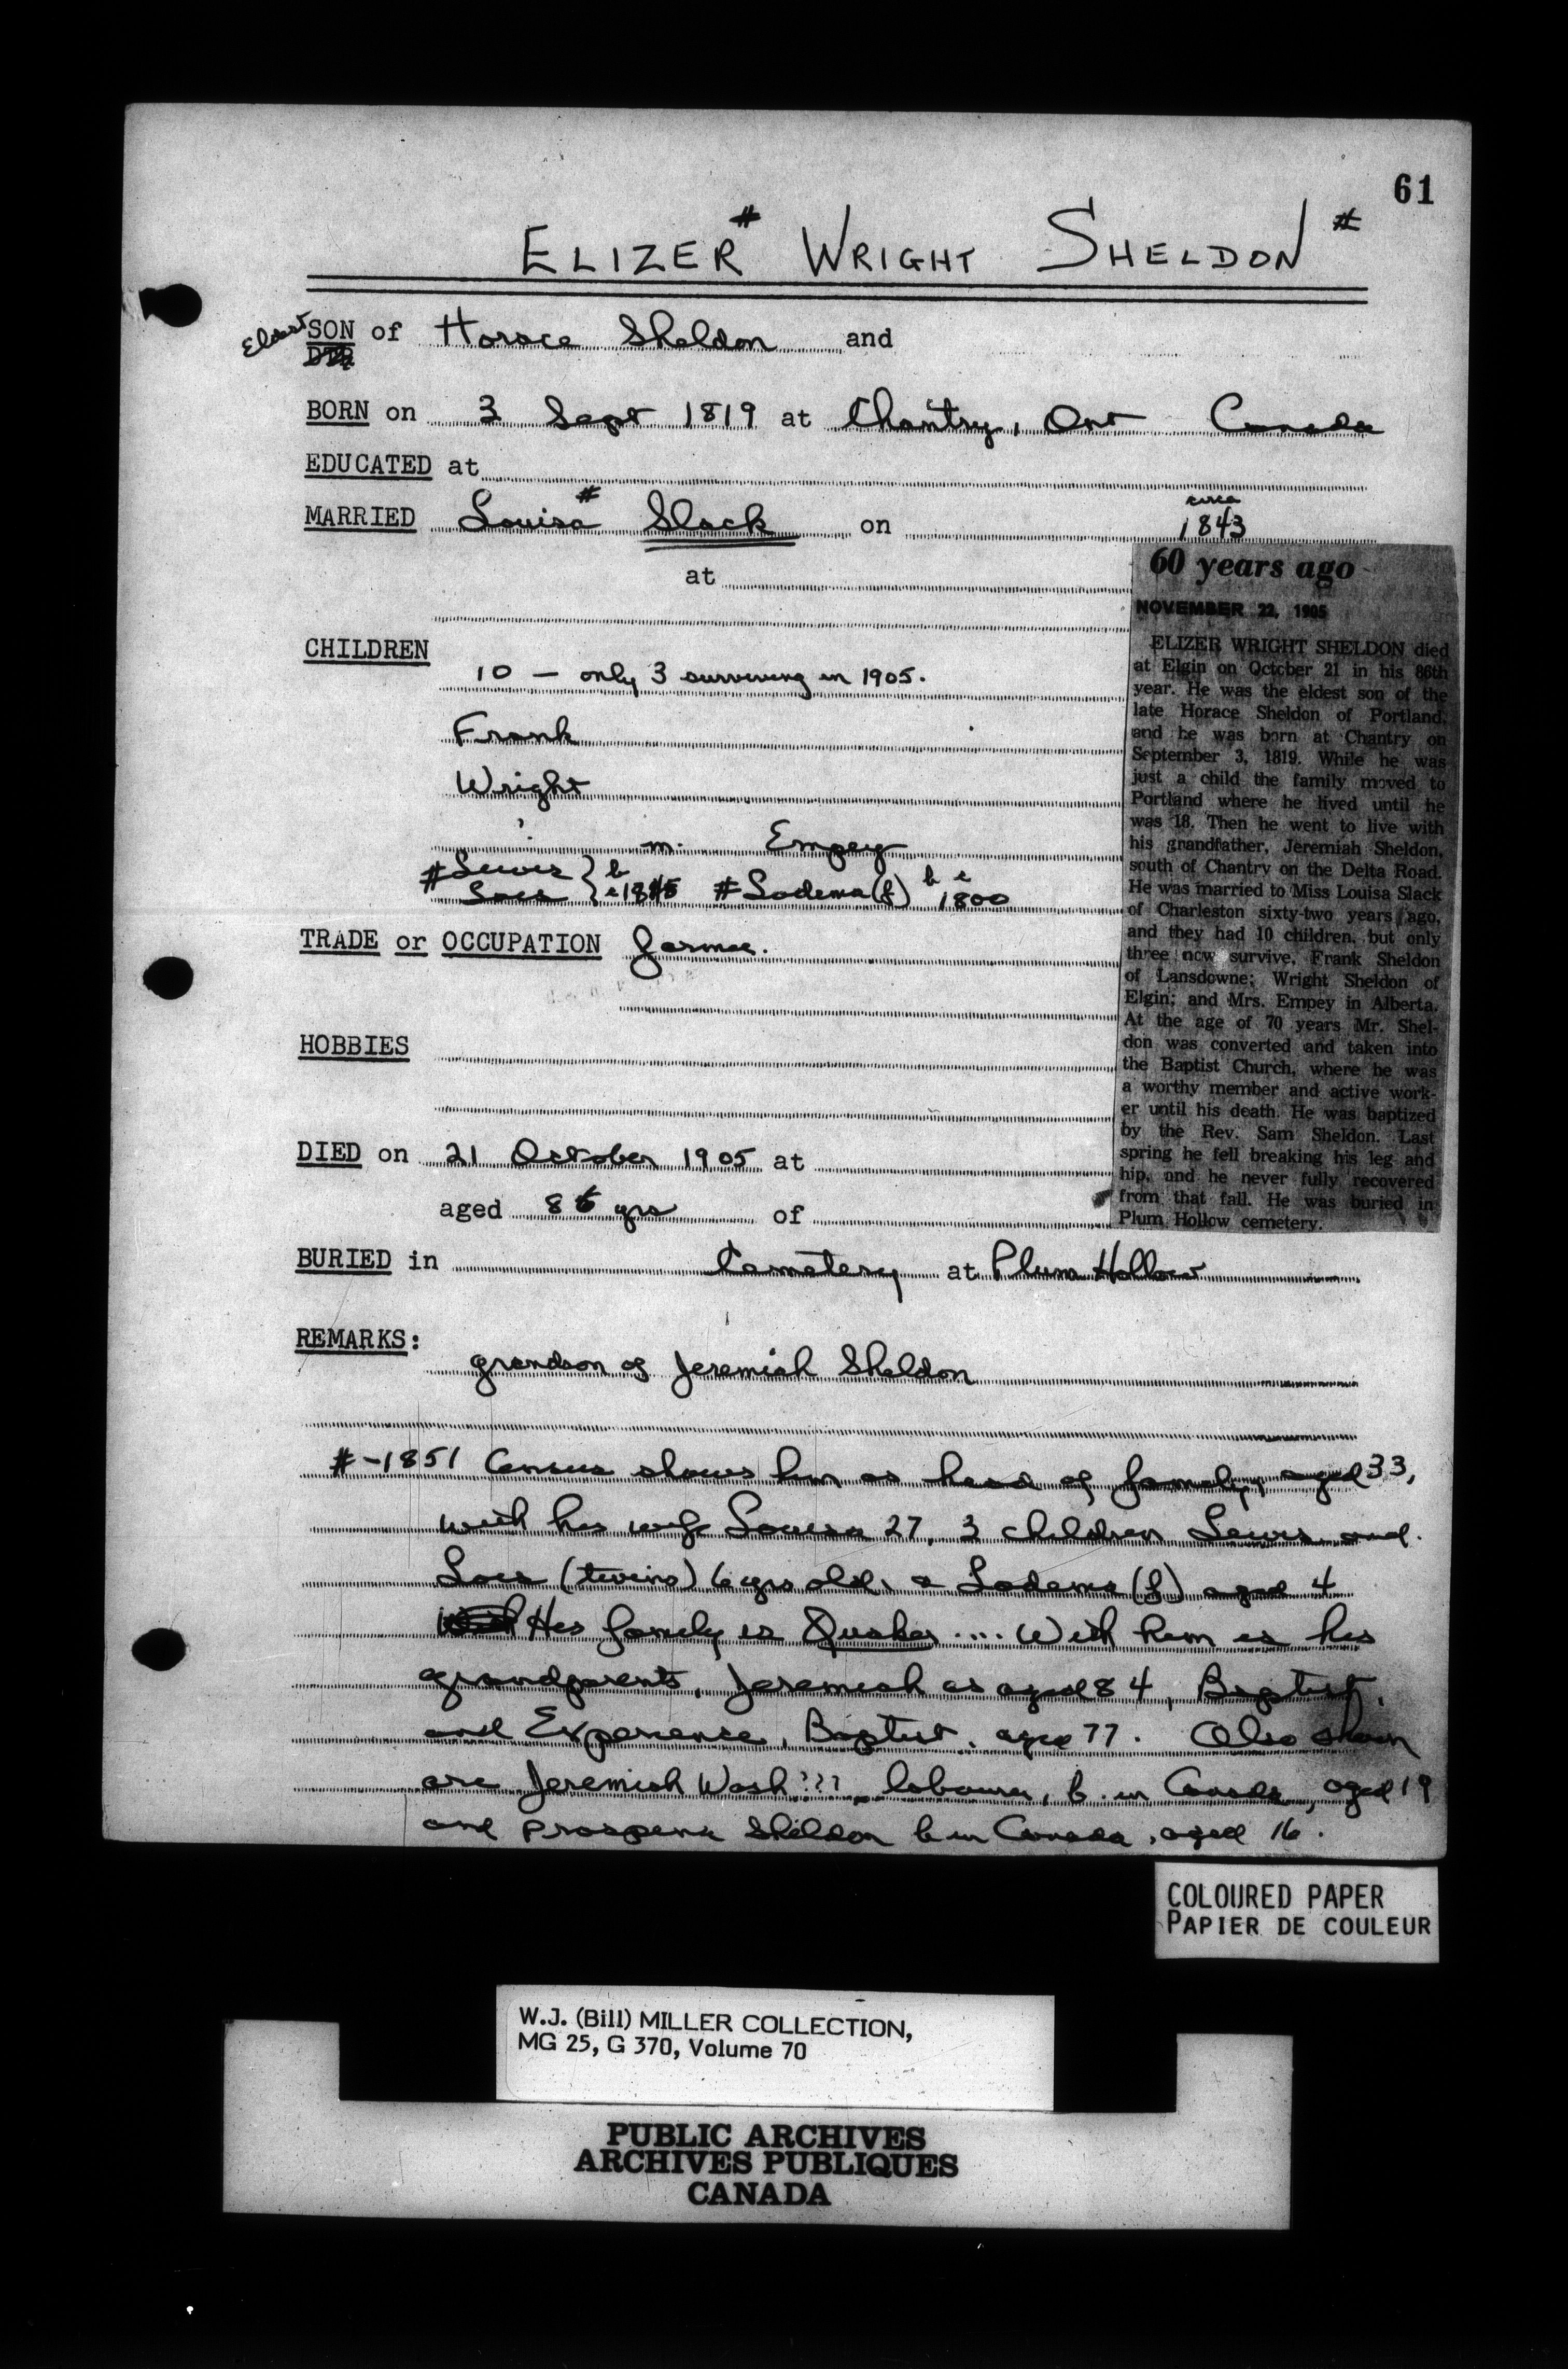 61
ELIZER # WRIGHT SHELDON #
Eldest SON of Horace Sheldon and
DTR
BORN on 3 Sept 1819 at Chantry, Ont Canada
EDUCATED at
MARRIED Louisa # Slack on circa 1843
at
CHILDREN
10 — only 3 surviving in 1905.
Frank
Wright
m. Empey
# Lewis } b
Lois } c 1845 # Lodema (f) b c 1800
TRADE or OCCUPATION farmer.
HOBBIES
DIED on 21 October 1905 at
aged 86 yrs of
BURIED in Cemetery at Plum Hollow
60 years ago
NOVEMBER 22, 1905
ELIZER WRIGHT SHELDON died
at Elgin on October 21 in his 86th
year. He was the eldest son of the
late Horace Sheldon of Portland,
and he was born at Chantry on
September 3, 1819. While he was
just a child the family moved to
Portland where he lived until he
was 18. Then he went to live with
his grandfather, Jeremiah Sheldon,
south of Chantry on the Delta Road.
He was married to Miss Louisa Slack
of Charleston sixty-two years ago,
and they had 10 children, but only
three now survive, Frank Sheldon
of Lansdowne; Wright Sheldon of
Elgin; and Mrs. Empey in Alberta.
At the age of 70 years Mr. Shel-
don was converted and taken into
the Baptist Church, where he was
a worthy member and active work-
er until his death. He was baptized
by the Rev. Sam Sheldon. Last
spring he fell breaking his leg and
hip, and he never fully recovered
from that fall. He was buried in
Plum Hollow cemetery.
REMARKS:
grandson of Jeremiah Sheldon
# -1851 Census shows him as head of family, aged 33,
with his wife Louisa 27, 3 children Lewis and
Lois (twins) 6 yrs old, & Lodema (f) aged 4
His family is Quaker .... With him is his
grandparents, Jeremiah as aged 84, Baptist,
and Experience, Baptist, aged 77. Also shown
are Jeremiah Wash???, labourer, b. in Canada, aged 19
and Sheldon b in Canada, aged 16.
COLOURED PAPER
PAPIER DE COULEUR
W.J. (Bill) MILLER COLLECTION,
MG 25, G 370, Volume 70
PUBLIC ARCHIVES
ARCHIVES PUBLIQUES
CANADA